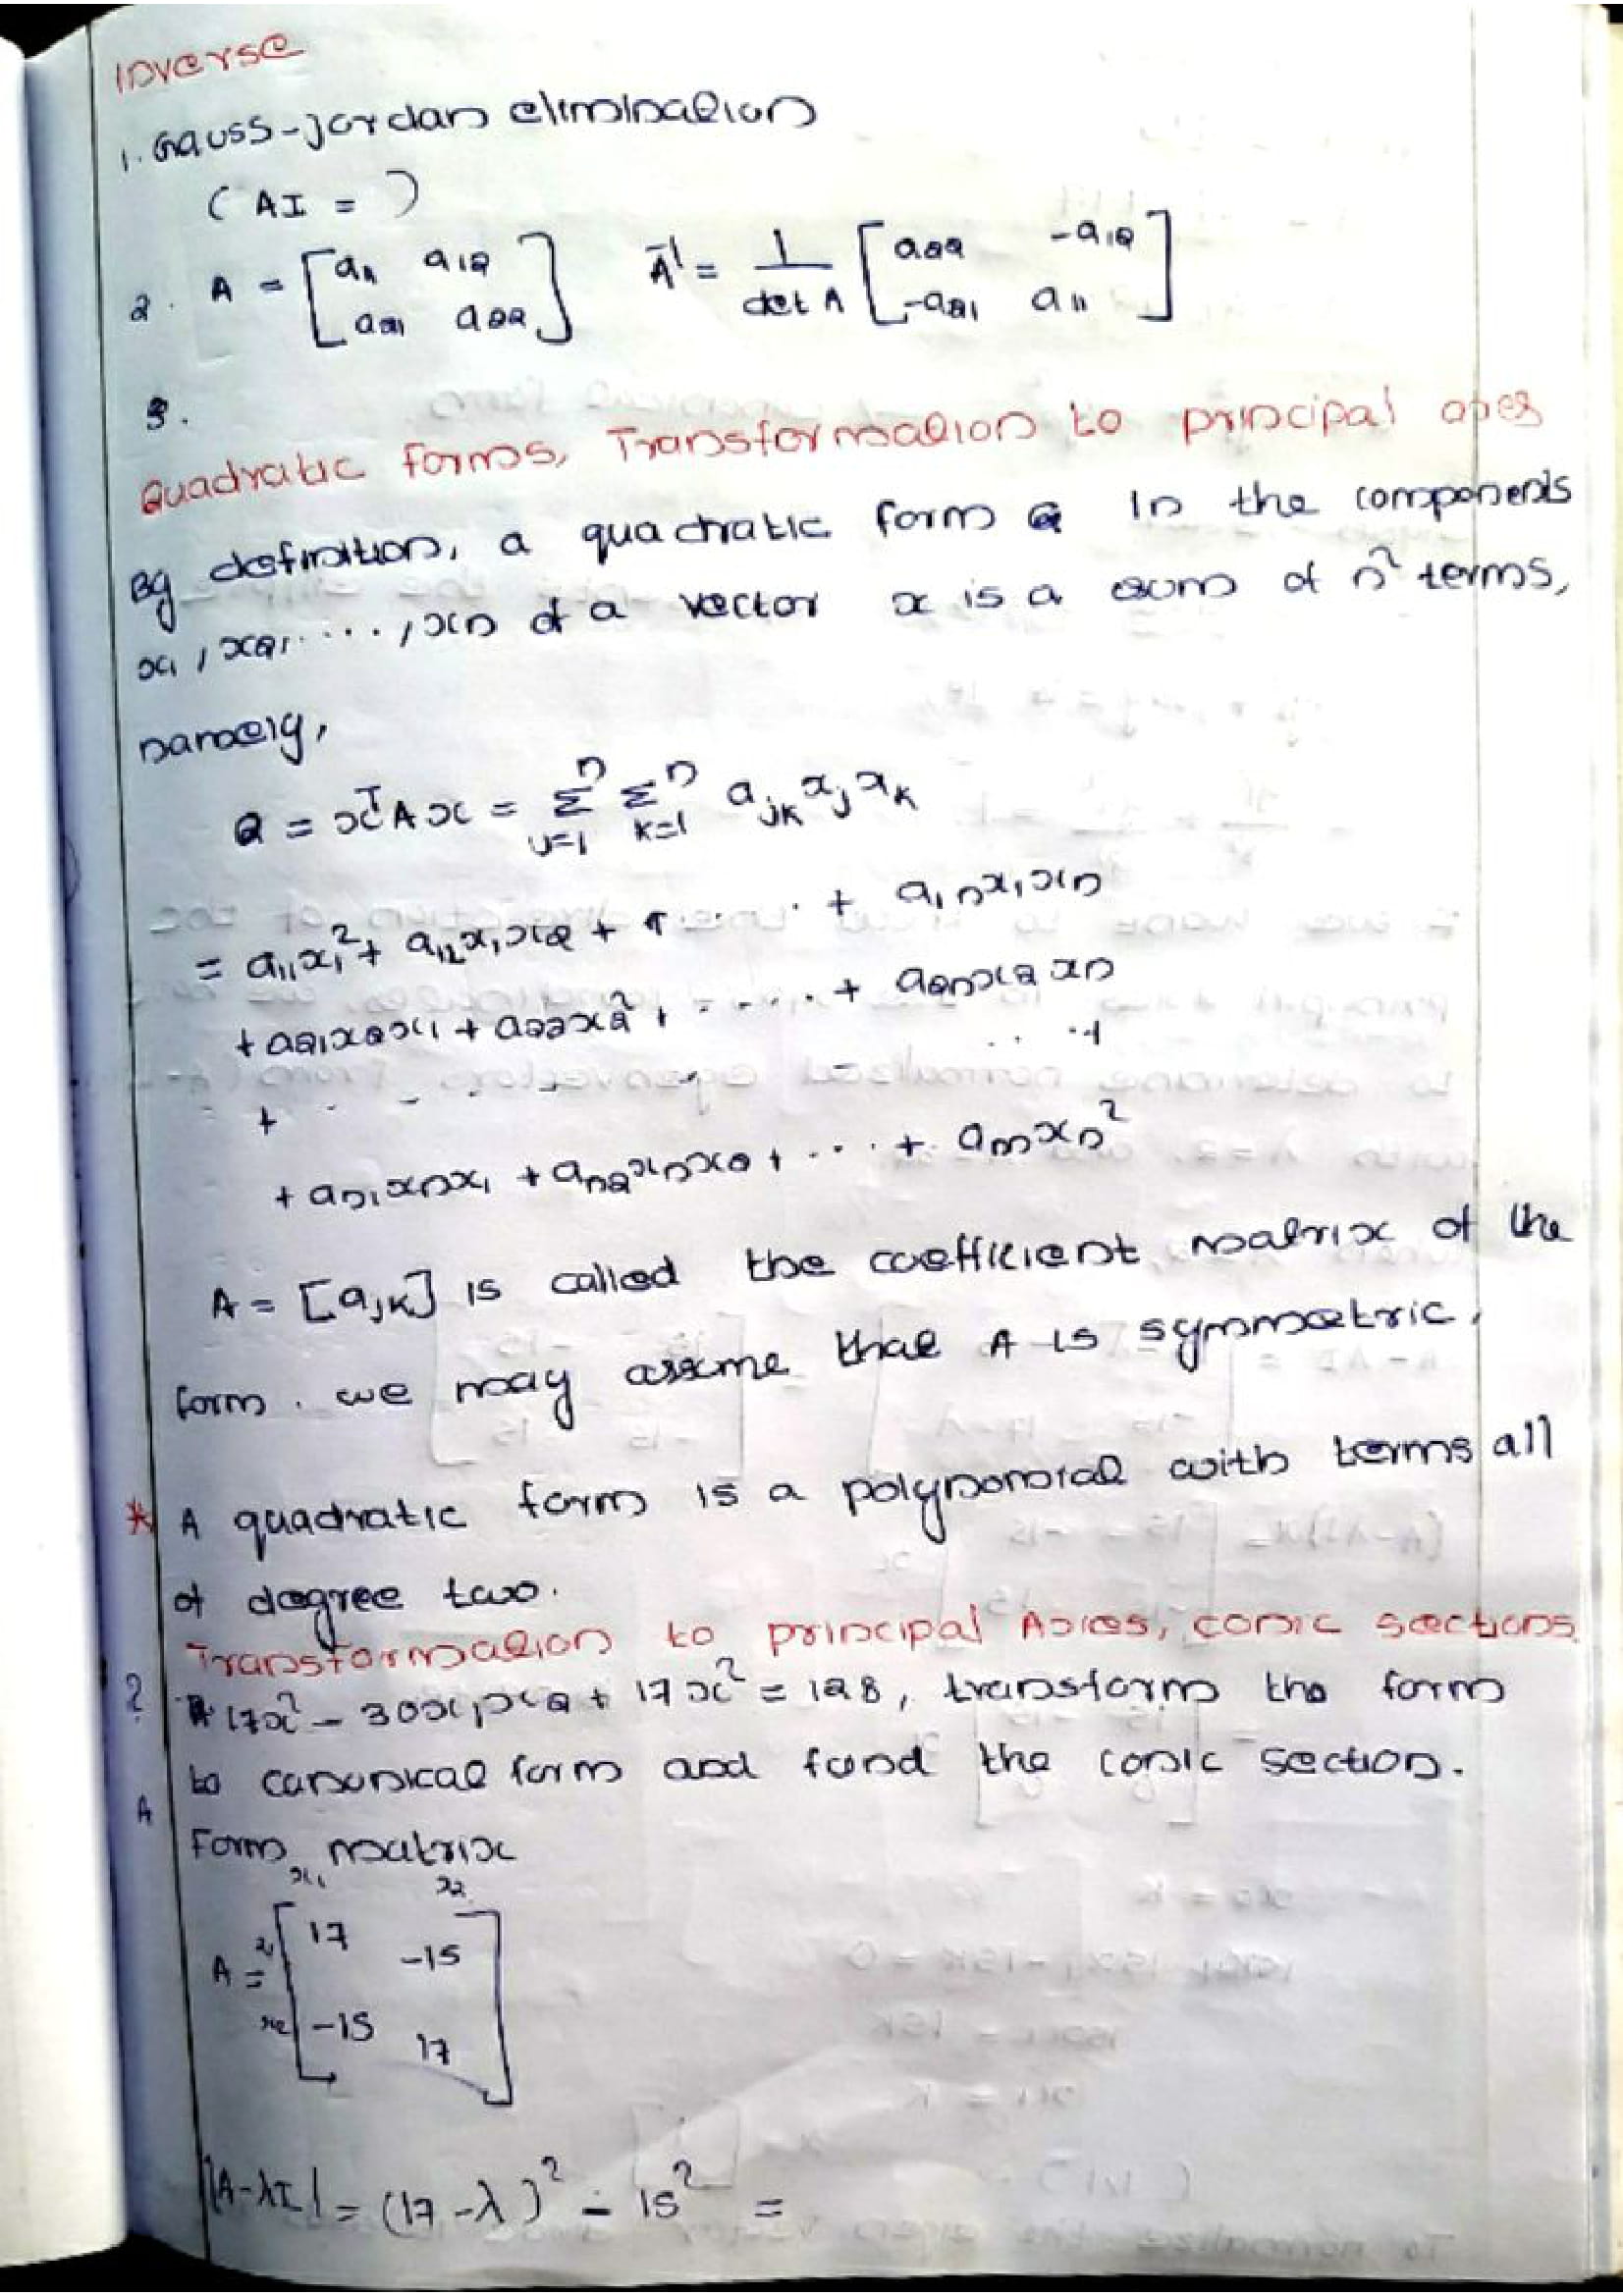 Inverse
1. Gauss-jordan elimination
( AI = )
2. A = [ a11 a12 ; a21 a22 ] A^-1 = 1/det A [ a22 -a12 ; -a21 a11 ]
3.
Quadratic forms, Transformation to principal axes
By definition, a quadratic form Q in the components
x1, x2, ...., xn of a vector x is a sum of n² terms,
namely,
Q = x^T A x = Σ_{j=1}^n Σ_{k=1}^n a_jk x_j x_k
= a11x1² + a12x1x2 + .... + a1nx1xn
+ a21x2x1 + a22x2² + ..... + a2nx2xn
+ . . . . . . . . +
+ an1xnx1 + an2xnx2 + ... + annxn²
A = [a_jk] is called the coefficient matrix of the
form. we may assume that A is symmetric,
* A quadratic form is a polynomial with terms all
of degree two.
Transformation to principal Axies, conic sections
? 17x² - 30x1x2 + 17x² = 128, transform the form
to canonical form and find the conic section.
A
Form matrix
x1 x2
A = x1 [ 17 -15
x2 -15 17 ]
|A-λI| = (17-λ)² - 15² =